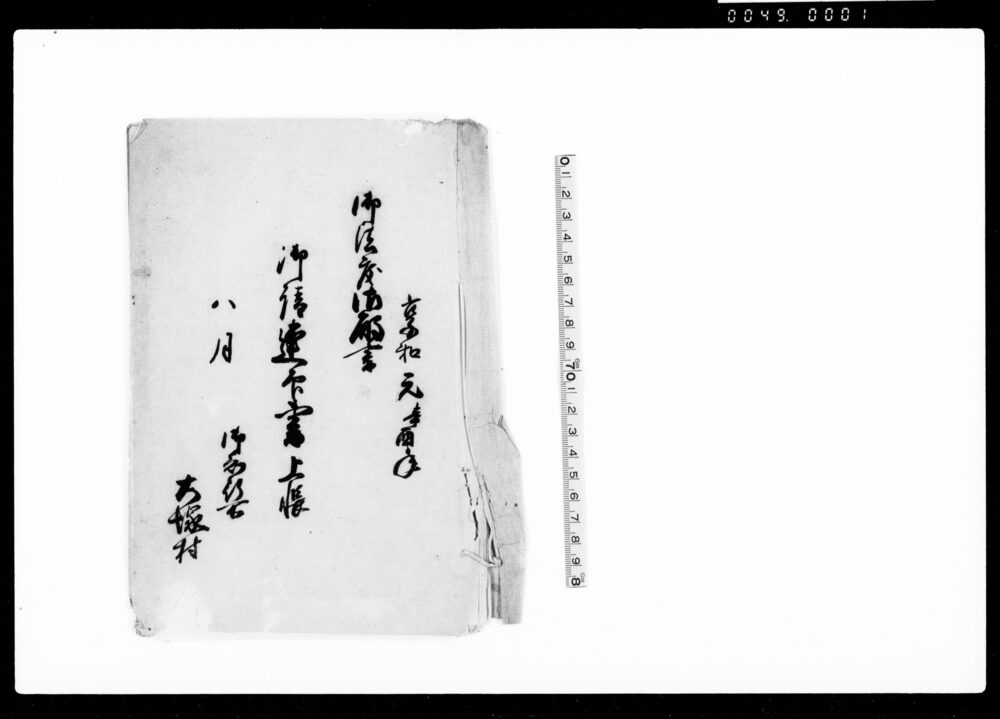 0049. 0001
享和元辛酉年
御法度御願書
御請連印書上帳
八月
大塚村
0 1 2 3 4 5 6 7 8 9 10 1 2 3 4 5 6 7 8 9 8